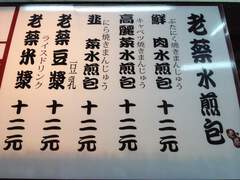 老蔡水煎包
ぶたにく焼きまんじゅう
鮮肉水煎包 十二元
キャベツ焼きまんじゅう
高麗菜水煎包 十二元
にら焼きまんじゅう
韭菜水煎包 十二元
豆乳
老蔡豆漿 十二元
ライスドリンク
老蔡米漿 十二元